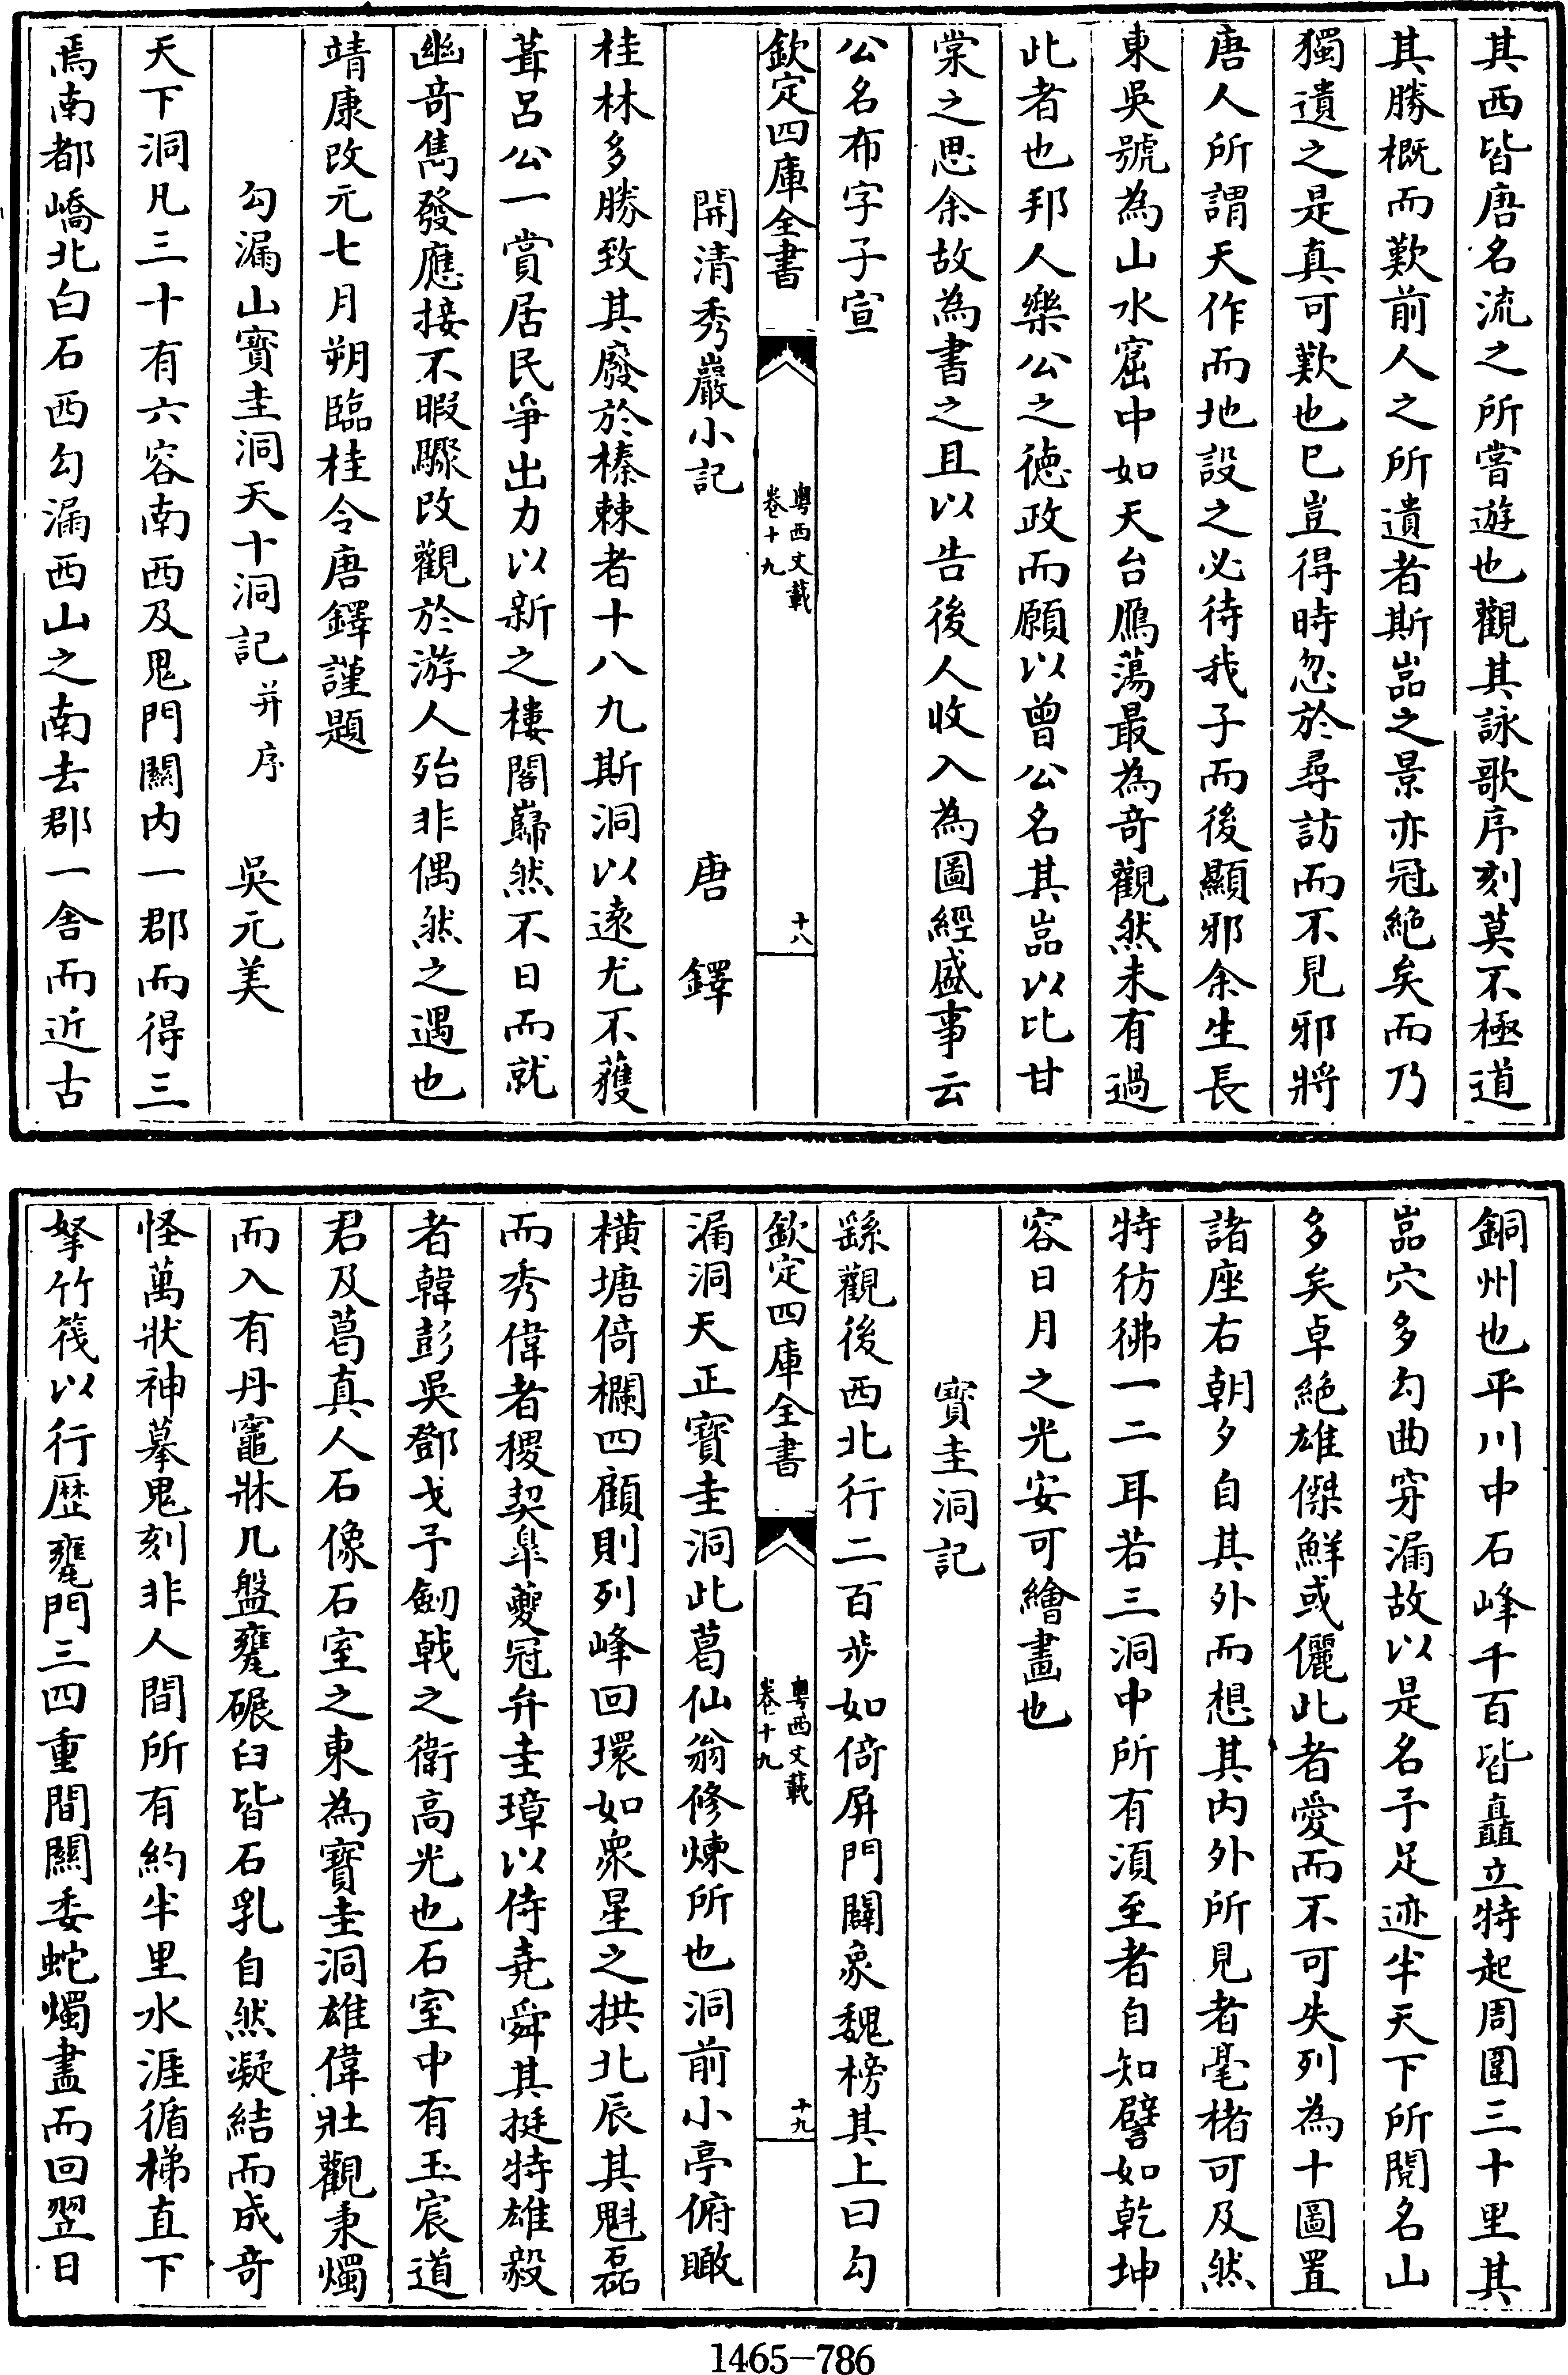 其西皆唐名流之所嘗遊也觀其詠歌序刻莫不極道
其勝概而歎前人之所遺者斯嵓之景亦冠絶矣而乃
獨遺之是真可歎也已豈得時忽於尋訪而不見邪將
唐人所謂天作而地設之必待我子而後顯邪余生長
東吳號為山水窟中如天台鴈蕩最為奇觀然未有過
此者也邦人樂公之德政而願以曾公名其嵓以比甘
棠之思余故為書之且以告後人收入為圖經盛事云
公名布字子宣
欽定四庫全書
粵西文載
卷十九
十八
開清秀巖小記 唐鐸
桂林多勝致其廢於榛棘者十八九斯洞以遠尤不獲
葺呂公一賞居民爭出力以新之樓閣巋然不日而就
幽奇雋發應接不暇驟改觀於游人殆非偶然之遇也
靖康改元七月朔臨桂令唐鐸謹題
勾漏山寳圭洞天十洞記并序 吳元美
天下洞凡三十有六容南西及鬼門關内一郡而得三
焉南都嶠北白石西勾漏西山之南去郡一舍而近古
銅州也平川中石峰千百皆矗立特起周圍三十里其
嵓穴多勾曲穿漏故以是名予足迹半天下所閱名山
多矣卓絶雄傑鮮或儷此者愛而不可失列為十圖置
諸座右朝夕自其外而想其内外所見者毫楮可及然
特彷彿一二耳若三洞中所有須至者自知譬如乾坤
容日月之光安可繪畫也
寳圭洞記
繇觀後西北行二百步如倚屏門闢象魏榜其上曰勾
欽定四庫全書
粵西文載
卷十九
十九
漏洞天正寳圭洞此葛仙翁修煉所也洞前小亭俯瞰
橫塘倚欄四顧則列峰回環如衆星之拱北辰其魁磊
而秀偉者稷契臯夔冠弁圭璋以侍堯舜其挺特雄毅
者韓彭吳鄧戈予劒戟之衛高光也石室中有玉宸道
君及葛真人石像石室之東為寳圭洞雄偉壯觀秉燭
而入有丹竈牀几盤甕碾臼皆石乳自然凝結而成奇
怪萬狀神摹鬼刻非人間所有約半里水涯循梯直下
拏竹筏以行歴甕門三四重間關委蛇燭盡而回翌日
1465-786